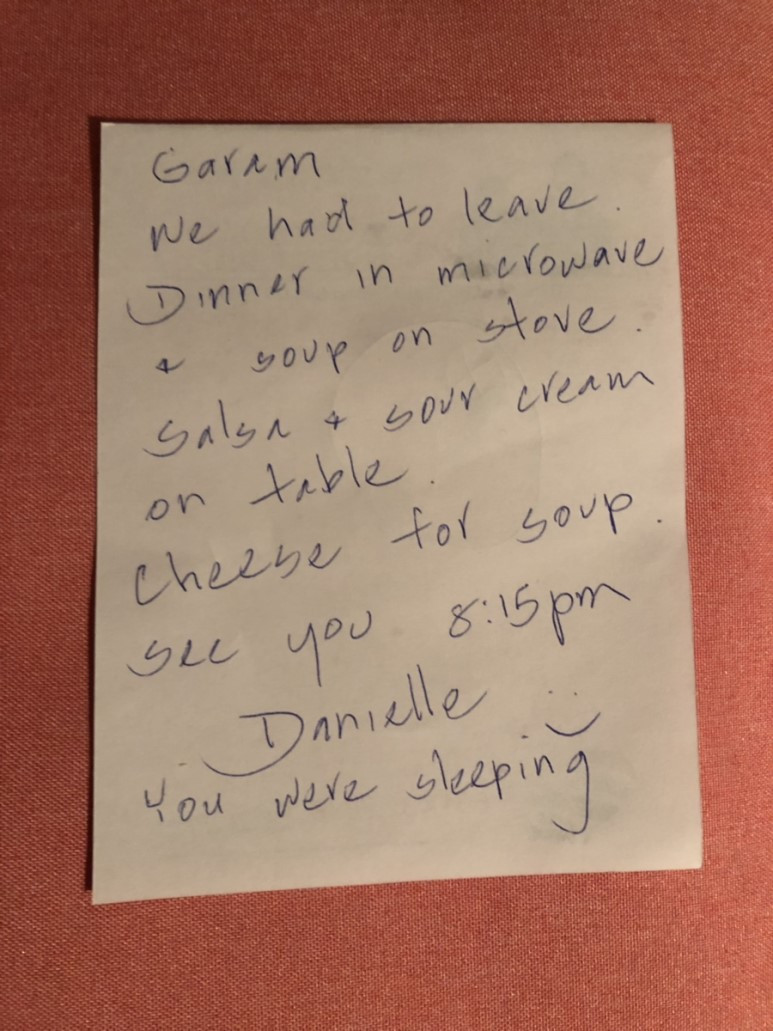 Garam
We had to leave.
Dinner in microwave
& soup on stove.
Salsa & sour cream
on table.
Cheese for soup.
see you 8:15pm
Danielle
You were sleeping